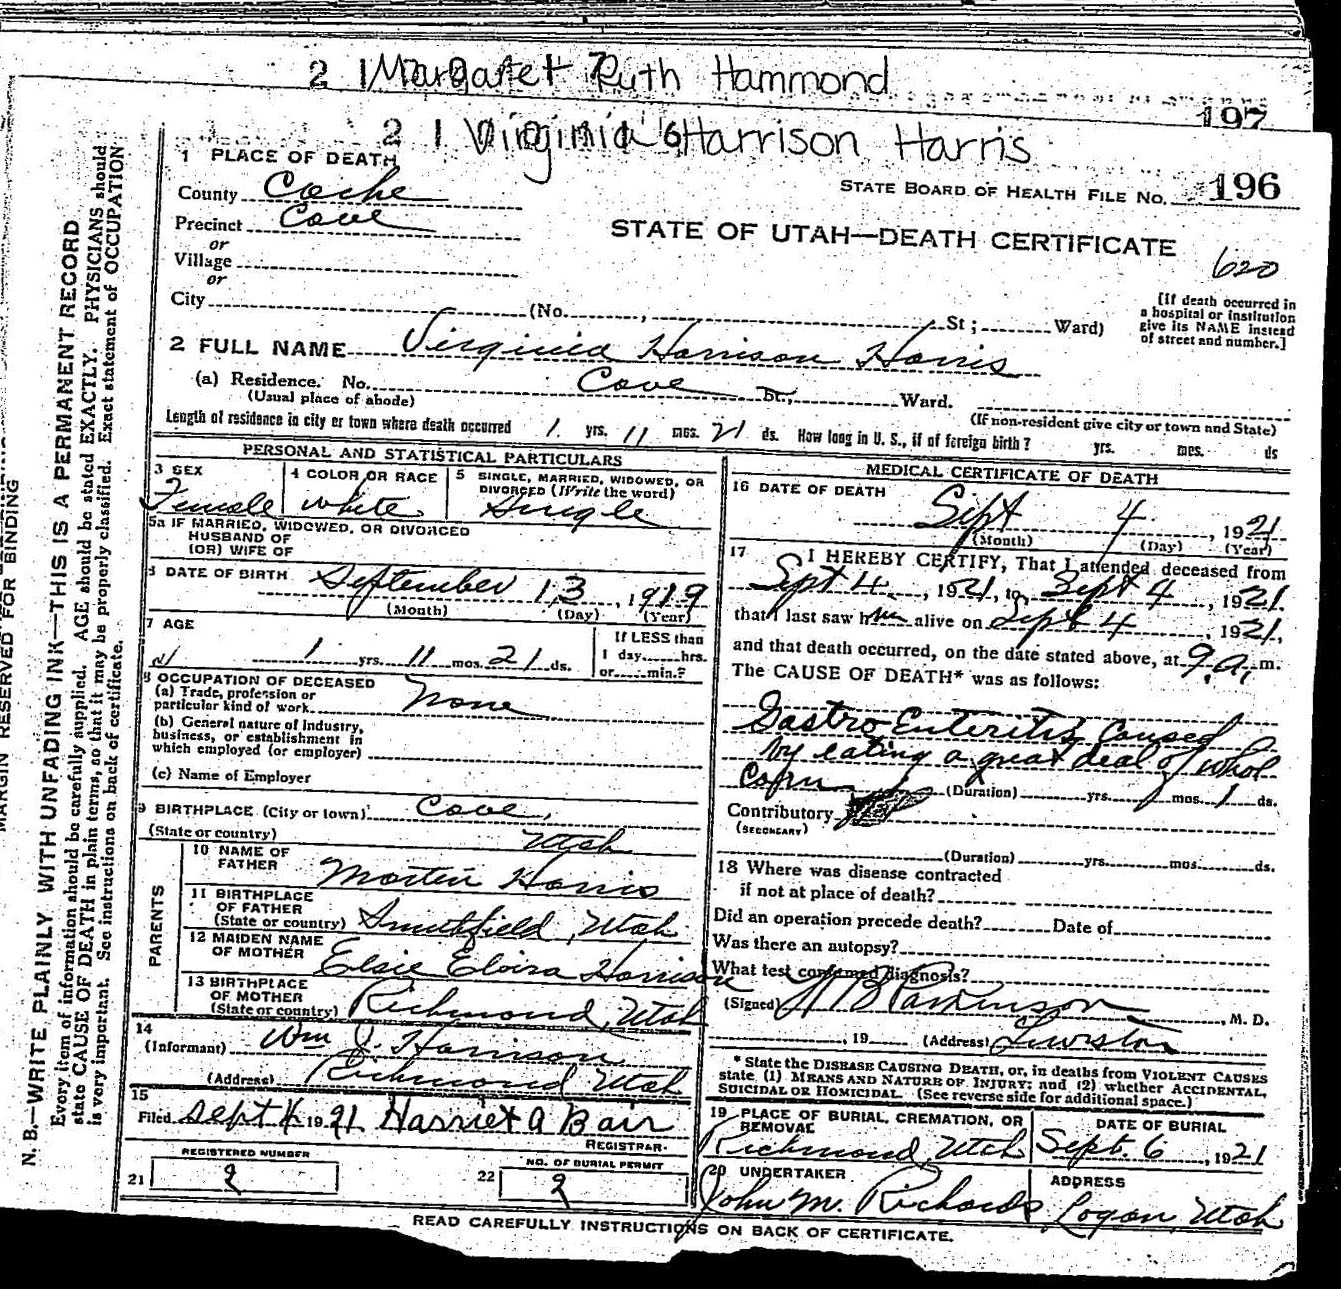 2 1 Margaret Ruth Hammond
197
2 1 Virginia Harrison Harris
1 PLACE OF DEATH
County Cache
STATE BOARD OF HEALTH FILE NO. 196
Precinct Cove
STATE OF UTAH—DEATH CERTIFICATE
or
Village
620
or
City (No. , St; Ward)
[If death occurred in a hospital or institution give its NAME instead of street and number.]
2 FULL NAME Virginia Harrison Harris
(a) Residence. No. Cove St., Ward.
(Usual place of abode) (If non-resident give city or town and State)
Length of residence in city or town where death occurred 1 yrs. 11 mos. 21 ds. How long in U. S., if of foreign birth? yrs. mos. ds
PERSONAL AND STATISTICAL PARTICULARS
3 SEX
Female
4 COLOR OR RACE
white
5 SINGLE, MARRIED, WIDOWED, OR
DIVORCED (Write the word)
Single
5a IF MARRIED, WIDOWED, OR DIVORCED
HUSBAND OF
(OR) WIFE OF
6 DATE OF BIRTH September 13, 1919
(Month) (Day) (Year)
7 AGE
1 yrs. 11 mos. 21 ds.
If LESS than
1 day, hrs.
or min.?
8 OCCUPATION OF DECEASED
(a) Trade, profession or
particular kind of work None
(b) General nature of Industry,
business, or establishment in
which employed (or employer)
(c) Name of Employer
9 BIRTHPLACE (City or town) Cove,
(State or country) Utah
PARENTS
10 NAME OF
FATHER Martin Harris
11 BIRTHPLACE
OF FATHER
(State or country) Smithfield, Utah
12 MAIDEN NAME
OF MOTHER Elsie Elvira Harrison
13 BIRTHPLACE
OF MOTHER
(State or country) Richmond, Utah
14
(Informant) Wm J. Harrison
(Address) Richmond Utah
15
Filed Sept 1921 Harriet A Bair
REGISTRAR.
REGISTERED NUMBER
21 2
NO. OF BURIAL PERMIT
22 2
MEDICAL CERTIFICATE OF DEATH
16 DATE OF DEATH
Sept 4, 1921
(Month) (Day) (Year)
17 I HEREBY CERTIFY, That I attended deceased from
Sept 4, 1921, to Sept 4, 1921
that I last saw h alive on Sept 4, 1921,
and that death occurred, on the date stated above, at 9 a. m.
The CAUSE OF DEATH* was as follows:
Gastro Enteritis Caused
by eating a great deal of whol
corn (Duration) yrs. mos. 1 ds.
Contributory
(SECONDARY)
(Duration) yrs. mos. ds.
18 Where was disease contracted
if not at place of death?
Did an operation precede death? Date of
Was there an autopsy?
What test confirmed diagnosis?
(Signed) W B Parkinson, M. D.
, 19 (Address) Lewiston
* State the DISEASE CAUSING DEATH, or, in deaths from VIOLENT CAUSES
state (1) MEANS AND NATURE OF INJURY; and (2) whether ACCIDENTAL,
SUICIDAL OR HOMICIDAL. (See reverse side for additional space.)
19 PLACE OF BURIAL, CREMATION, OR
REMOVAL
Richmond, Utah
DATE OF BURIAL
Sept. 6, 1921
20 UNDERTAKER
John M. Richards
ADDRESS
Logan, Utah
READ CAREFULLY INSTRUCTIONS ON BACK OF CERTIFICATE.
MARGIN RESERVED FOR BINDING
N. B.—WRITE PLAINLY WITH UNFADING INK—THIS IS A PERMANENT RECORD
Every item of information should be carefully supplied. AGE should be stated EXACTLY. PHYSICIANS should
state CAUSE OF DEATH in plain terms, so that it may be properly classified. Exact statement of OCCUPATION
is very important. See instructions on back of certificate.